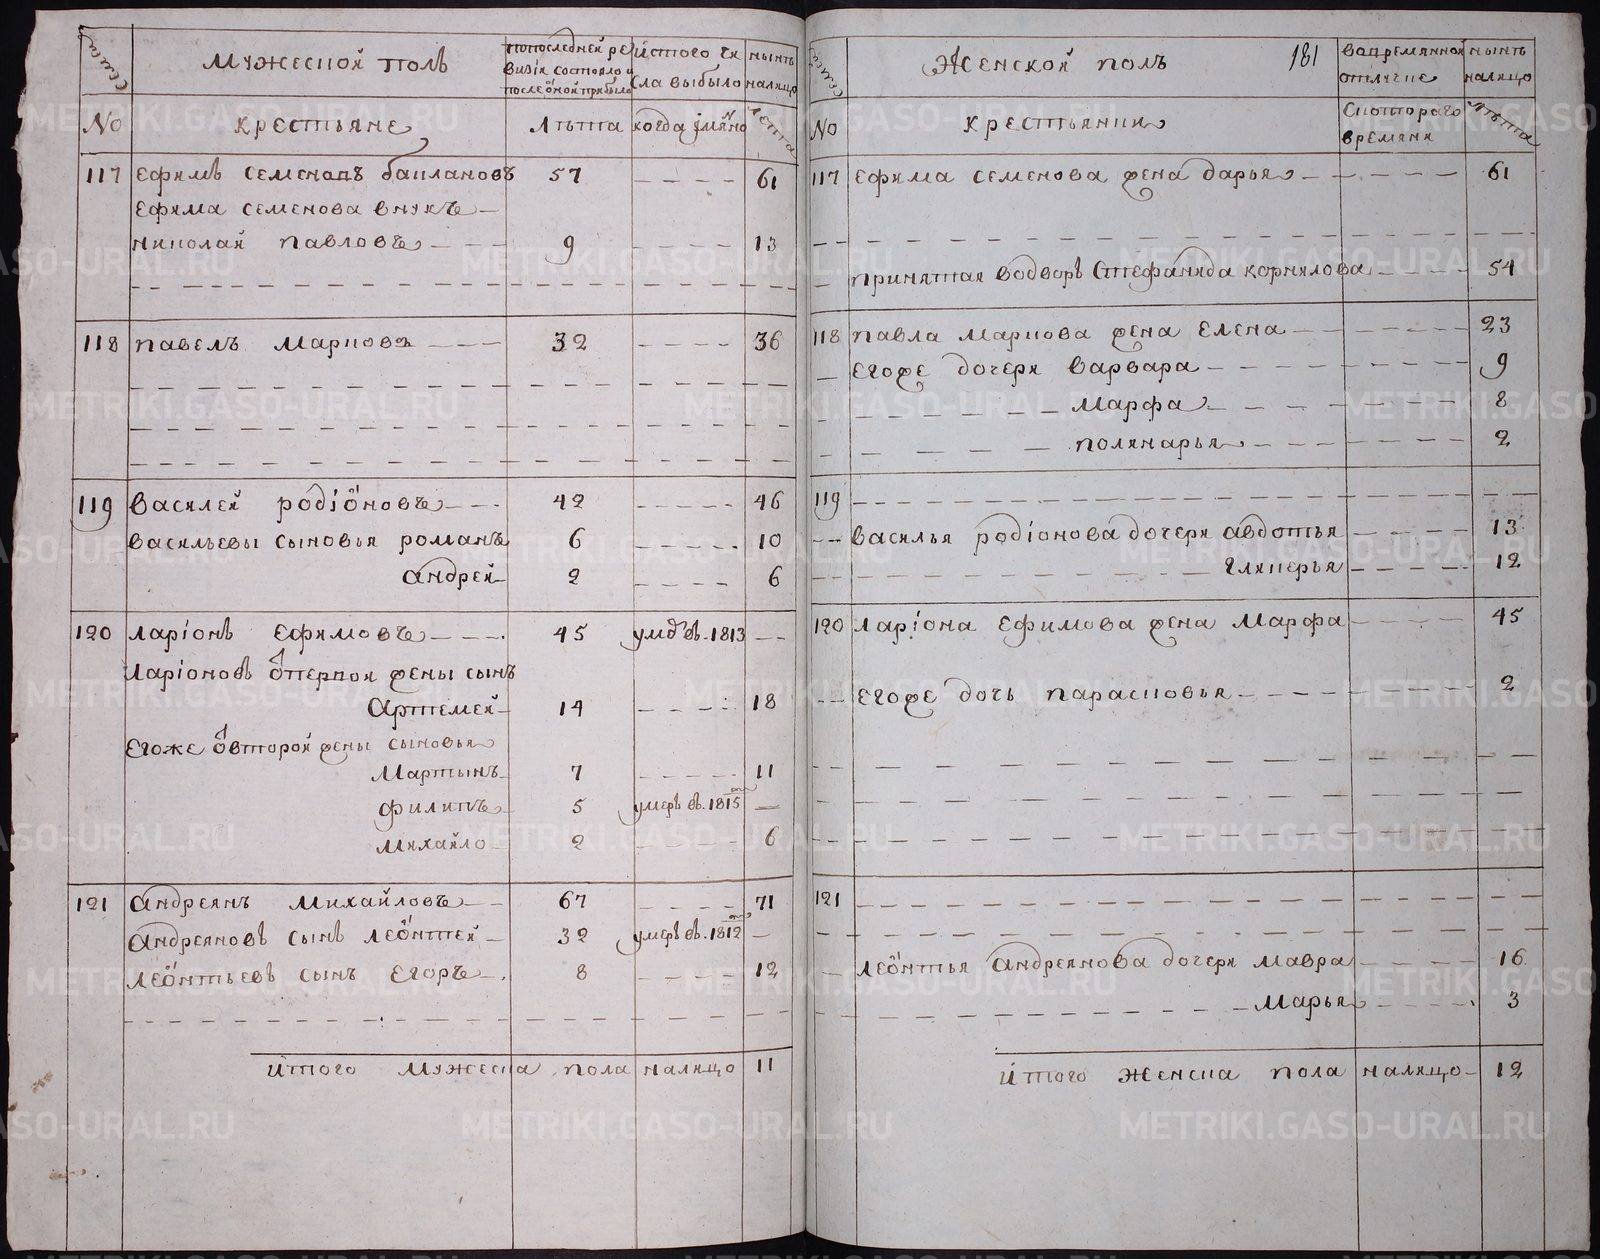 семьи
Мужеской полъ
попоследней ревизіи состояло и после оной прибыло
Изтого числа выбыло
нынѣ налицо
No
крестьяне
Лѣта
когда имяно
Лета
117 Ефимъ Семеновъ Баклановъ 57 61
Ефима Семенова внукъ
Николай Павловъ 9 13
118 Павелъ Марковъ 32 36
119 Василей Родіоновъ 42 46
Васильевы сыновья Романъ 6 10
Андрей 2 6
120 Ларіонъ Ефимовъ 45 умре въ 1813
Ларіоновъ отпервой жены сынъ
Артемей 14 18
Егоже отвторой жены сыновья
Мартынъ 7 11
Филипъ 5 умеръ въ 1815
Михайло 2 6
121 Андреянъ Михайловъ 67 71
Андреяновъ сынъ Леонтей 32 умеръ въ 1812
Леонтьевъ сынъ Егоръ 8 12
Итого мужеска пола налицо 11
семьи
Женской полъ
181
вовремянной отлучке
нынѣ налицо
No
крестьянки
Скотораго времяни
Лѣта
117 Ефима Семенова жена Дарья 61
принятая водворъ Стефанида Корнилова 54
118 Павла Маркова жена Елена 23
Егоже дочери Варвара 9
Марфа 8
Полинарья 2
119
Василья Родіонова дочери Авдотья 13
Гликерья 12
120 Ларіона Ефимова жена Марфа 45
Егоже дочь Парасковья 2
121
Леонтья Андреянова дочери Мавра 16
Марья 3
Итого женска пола налицо 12
METRIKI.GASO-URAL.RU